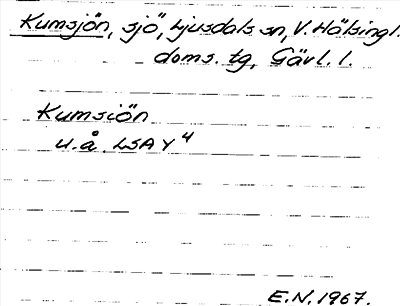 Kumsjön, sjö, Ljusdals sn, V. Hälsingl.
doms. tg, Gävl. l.
Kumsiön
u.å. LSA Y 4
E.N. 1967.